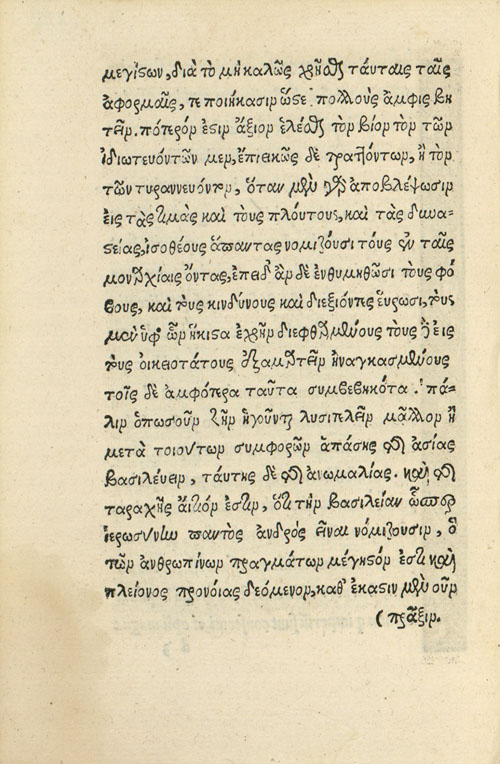 μεγίστων, διὰ τὸ μὴ καλῶς χρῆσθαι ταύταις ταῖς
ἀφορμαῖς, πεποιήκασιν ὥστε πολλοὺς ἀμφισβη
τεῖν. πότερόν ἐστιν ἄξιον ἑλέσθαι τὸν βίον τὸν τῶν
ἰδιωτευόντων μεν, ἐπιεικῶς δὲ πραττόντων, ἢ τὸν
τῶν τυραννευόντων, ὅταν μὲν γὰρ ἀποβλέψωσιν
εἰς τὰς τιμὰς καὶ τοὺς πλούτους, καὶ τὰς δυνα-
στείας, ἰσοθέους ἅπαντας νομίζουσι τοὺς ἐν ταῖς
μοναρχίαις ὄντας, ἐπειδ' ἂν δὲ ἐνθυμηθῶσι τοὺς φό
βους, καὶ τοὺς κινδύνους καὶ διεξιόντες εὕρωσι, τοὺς
μὲν ὑφ' ὧν ἥκιστα ἐχρῆν διεφθαρμένους τοὺς δ' εἰς
τοὺς οἰκειοτάτους ἐξαμαρτεῖν ἠναγκασμένους
τοῖς δὲ ἀμφότερα ταῦτα συμβεβηκότα. πά-
λιν ὁπωσοῦν ζῆν ἡγοῦνται λυσιτελεῖν μᾶλλον ἢ
μετὰ τοιούτων συμφορῶν ἁπάσης τῆς ἀσίας
βασιλεύειν, ταύτης δὲ τῆς ἀνωμαλίας. καὶ τῆς
ταραχῆς αἴτιόν ἐστιν, ὅτι τὴν βασιλείαν ὥσπερ
ἱερωσύνην παντὸς ἀνδρὸς εἶναι νομίζουσιν, ὃ
τῶν ἀνθρωπίνων πραγμάτων μέγιστόν ἐστι καὶ
πλείονος προνοίας δεόμενον, καθ' ἑκάστην μὲν οὖν
(πρᾶξιν.